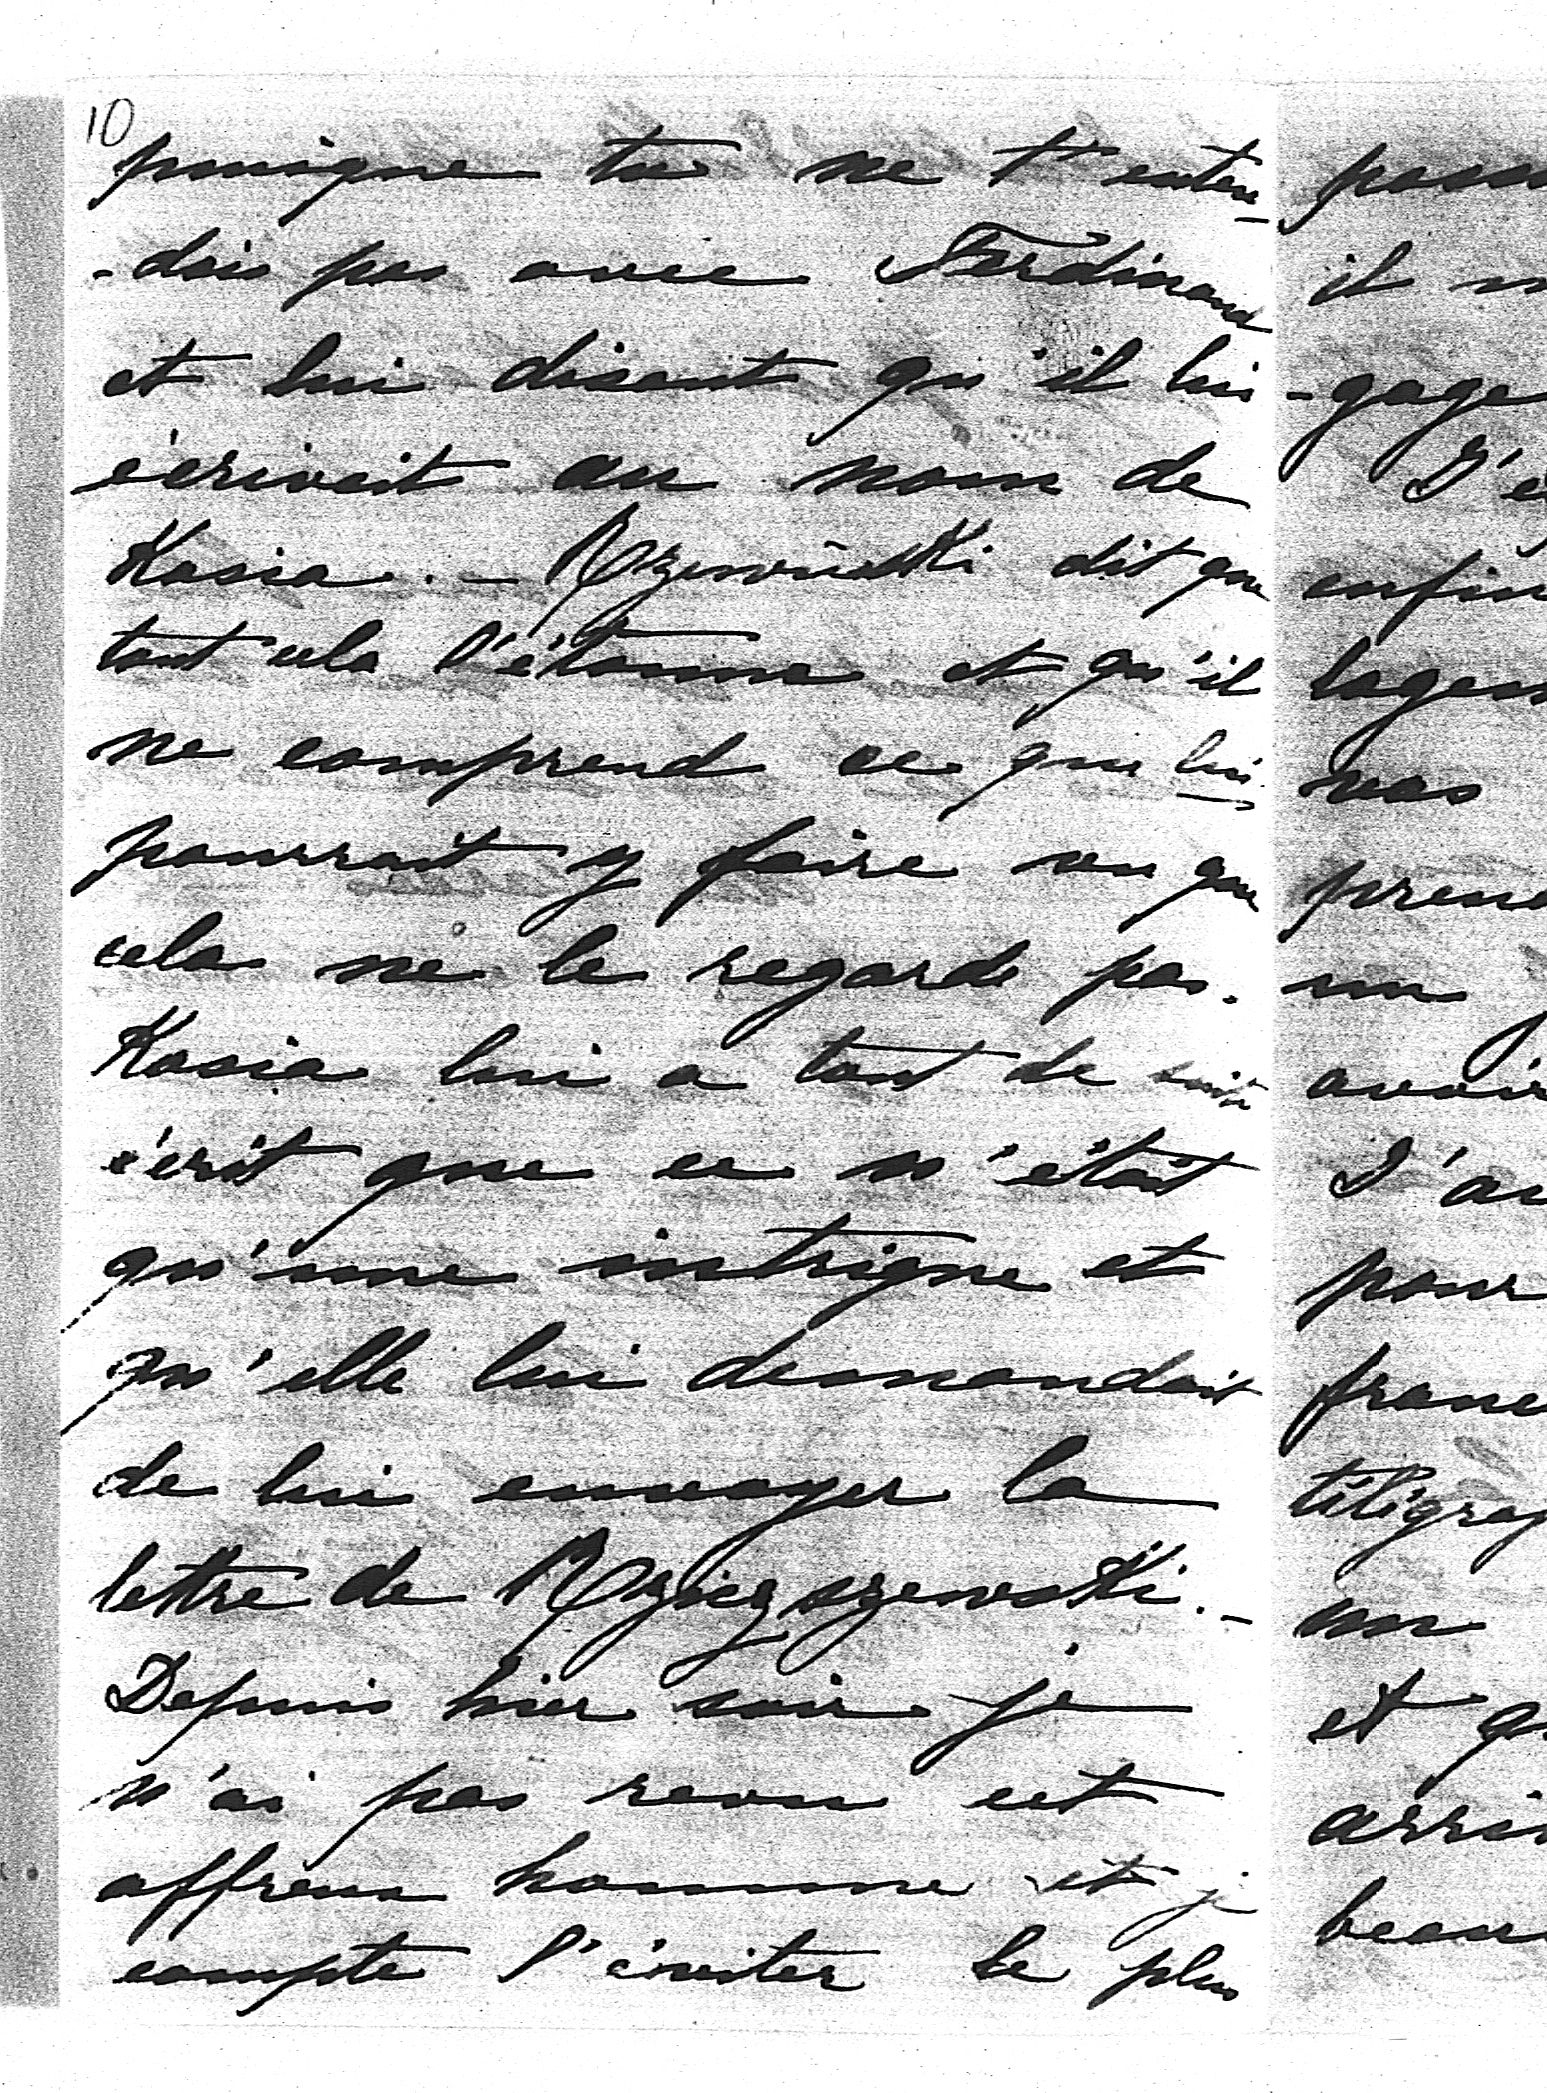 10
puisque tu ne t'enten-
-dais pas avec Ferdinand
et lui disant qu'il lui
écrivait au nom de
Kasia. - dit que
tout cela l'étonne et qu'il
ne comprend ce que lui
pourrait y faire vu que
cela ne le regarde pas.
Kasia lui a tout de suite
écrit que ce n'était
qu'une intrigue et
qu'elle lui demandait
de lui envoyer la
lettre de -
Depuis hier soir je
n'ai pas revu cet
affreux homme et je
compte l'éviter le plus
il
-gage
J'
enfin
vas
un
avoir
J'
pour
un
et